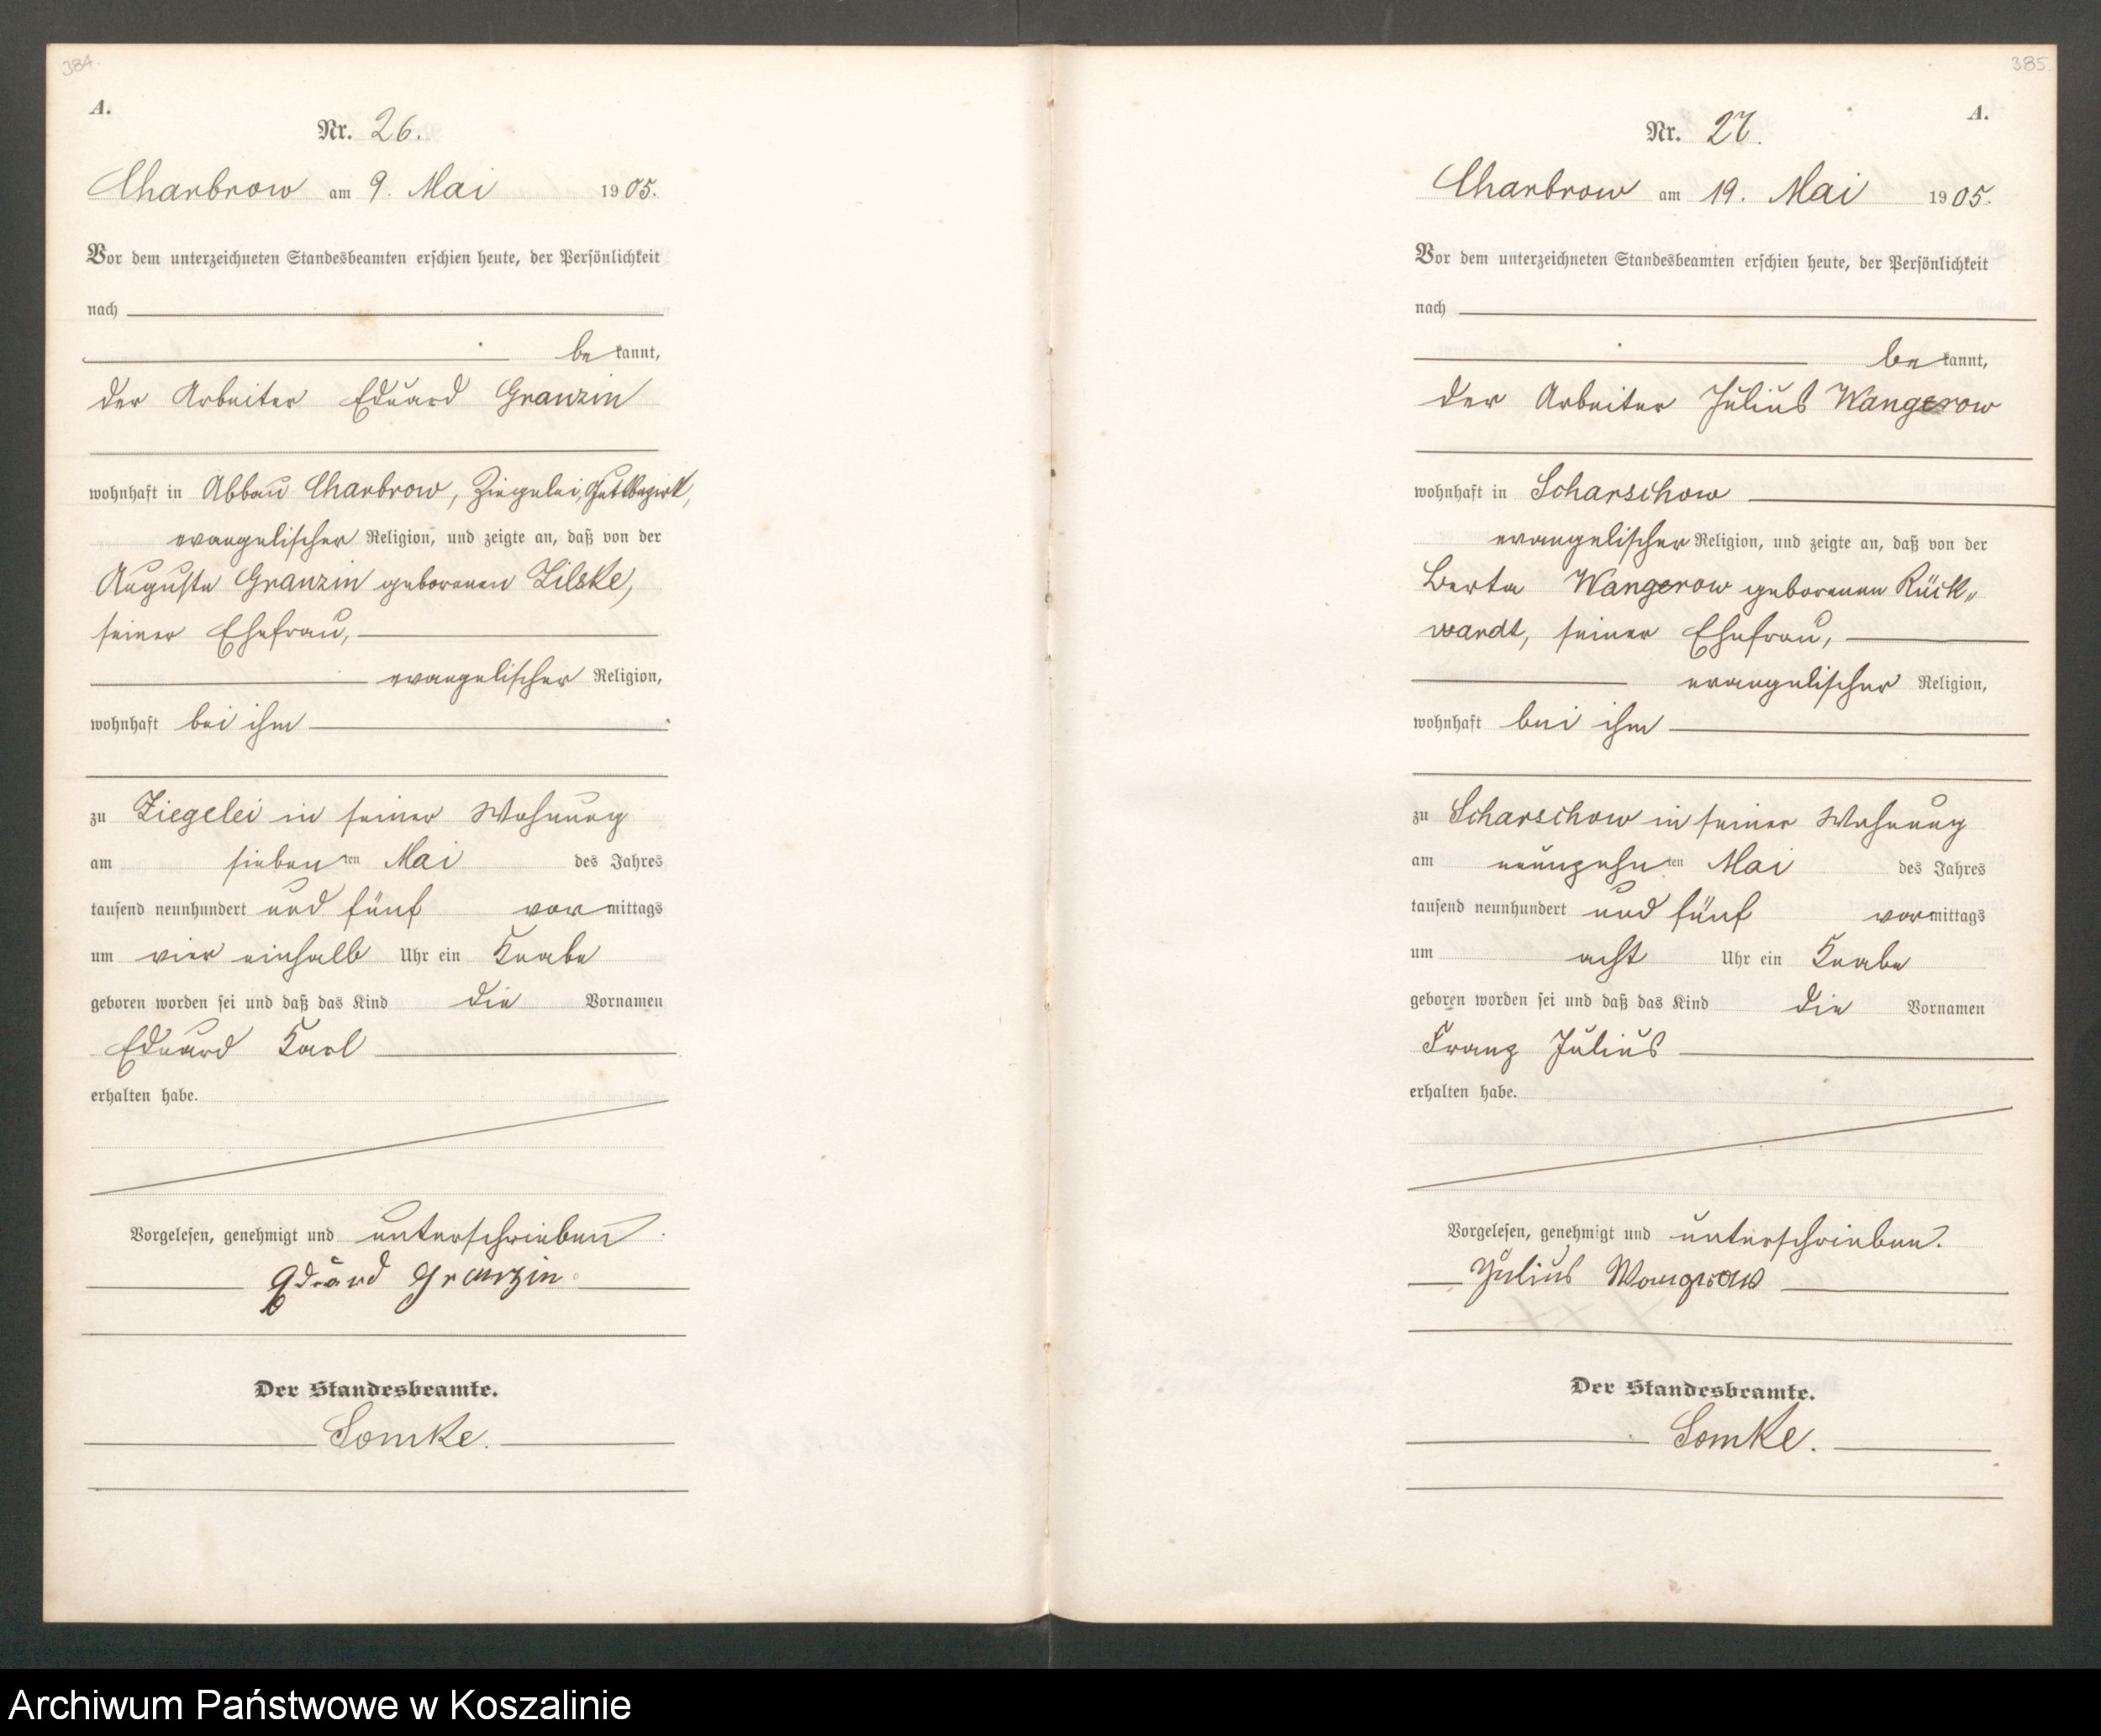 384.
A.
Nr. 26.
Charbrow am 9. Mai 1905.
Vor dem unterzeichneten Standesbeamten erschien heute, der Persönlichkeit
nach
bekannt,
der Arbeiter Eduard Granzin
wohnhaft in Abbau Charbrow, Ziegelei, Gutsbezirk,
evangelischer Religion, und zeigte an, daß von der
Auguste Granzin geborenen Zilske,
seiner Ehefrau,
evangelischer Religion,
wohnhaft bei ihm
zu Ziegelei in seiner Wohnung
am siebenten Mai des Jahres
tausend neunhundert und fünf vormittags
um vier einhalb Uhr ein Knabe
geboren worden sei und daß das Kind die Vornamen
Eduard Karl
erhalten habe.
Vorgelesen, genehmigt und unterschrieben.
Eduard Granzin
Der Standesbeamte.
Somke.
385.
A.
Nr. 27.
Charbrow am 19. Mai 1905.
Vor dem unterzeichneten Standesbeamten erschien heute, der Persönlichkeit
nach
bekannt,
der Arbeiter Julius Wangerow
wohnhaft in Scharschow
evangelischer Religion, und zeigte an, daß von der
Berta Wangerow geborenen Rück„
wardt, seiner Ehefrau,
evangelischer Religion,
wohnhaft bei ihm
zu Scharschow in seiner Wohnung
am neunzehnten Mai des Jahres
tausend neunhundert und fünf vormittags
um acht Uhr ein Knabe
geboren worden sei und daß das Kind die Vornamen
Franz Julius
erhalten habe.
Vorgelesen, genehmigt und unterschrieben.
Julius Wangerow
Der Standesbeamte.
Somke.
Archiwum Państwowe w Koszalinie